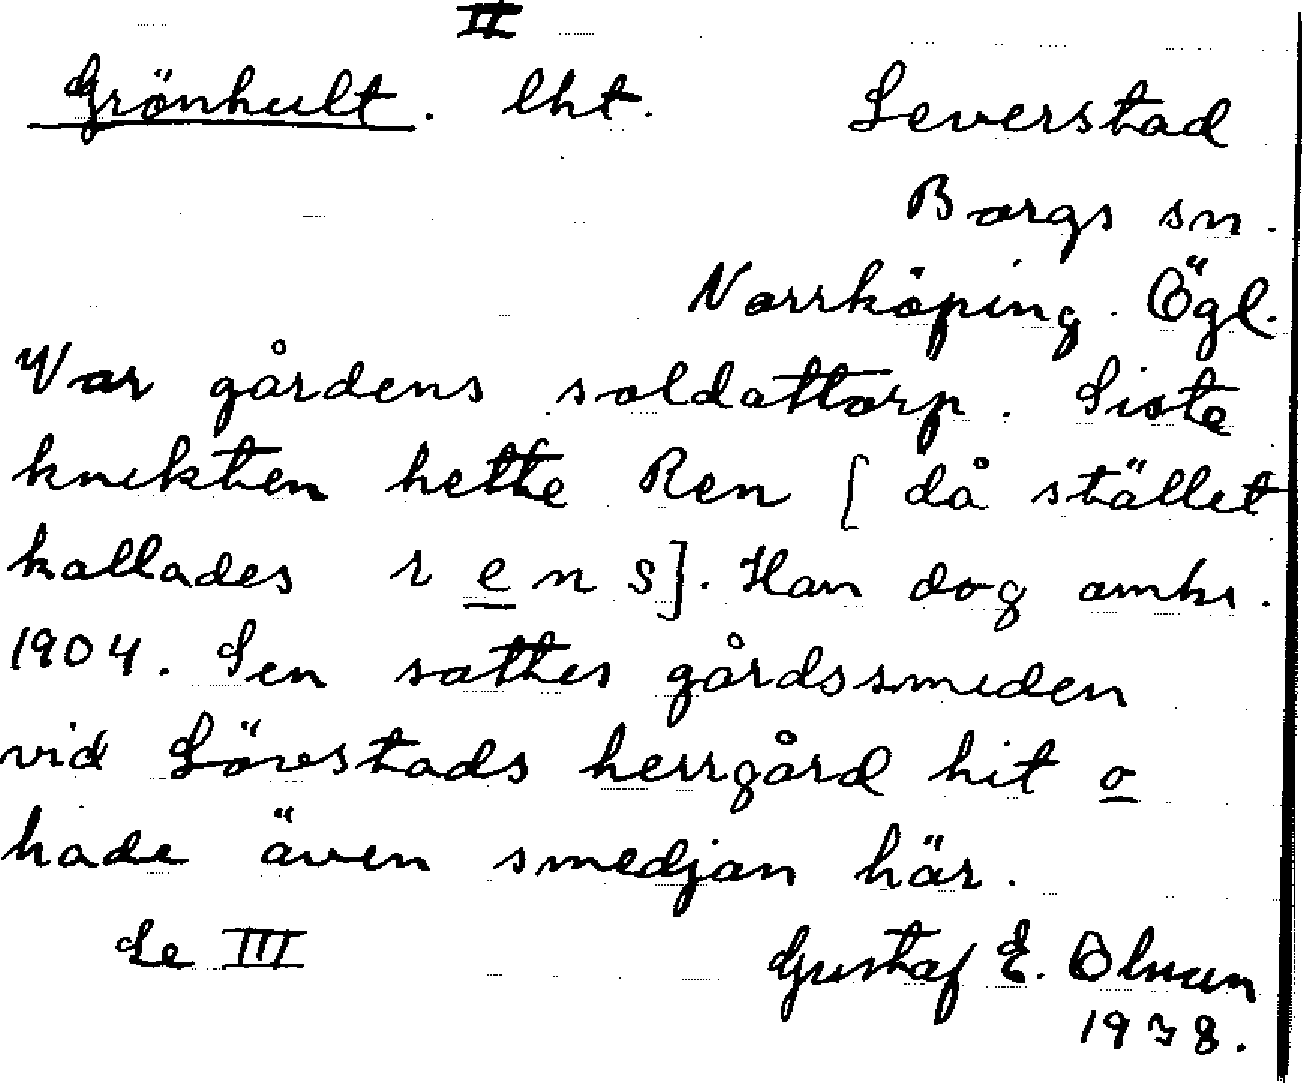 II
Grönhult. lht. Leverstad
Borgs sn.
Norrköping. Ögl.
Var gårdens soldattorp. Siste
knekten hette Ren [då stället
kallades r e n s]. Han dog omkr.
1904. Sen sattes gårdssmeden
vid Lövstads herrgård hit o
hade även smedjan här.
Se III Gustaf E. Olman
1938.